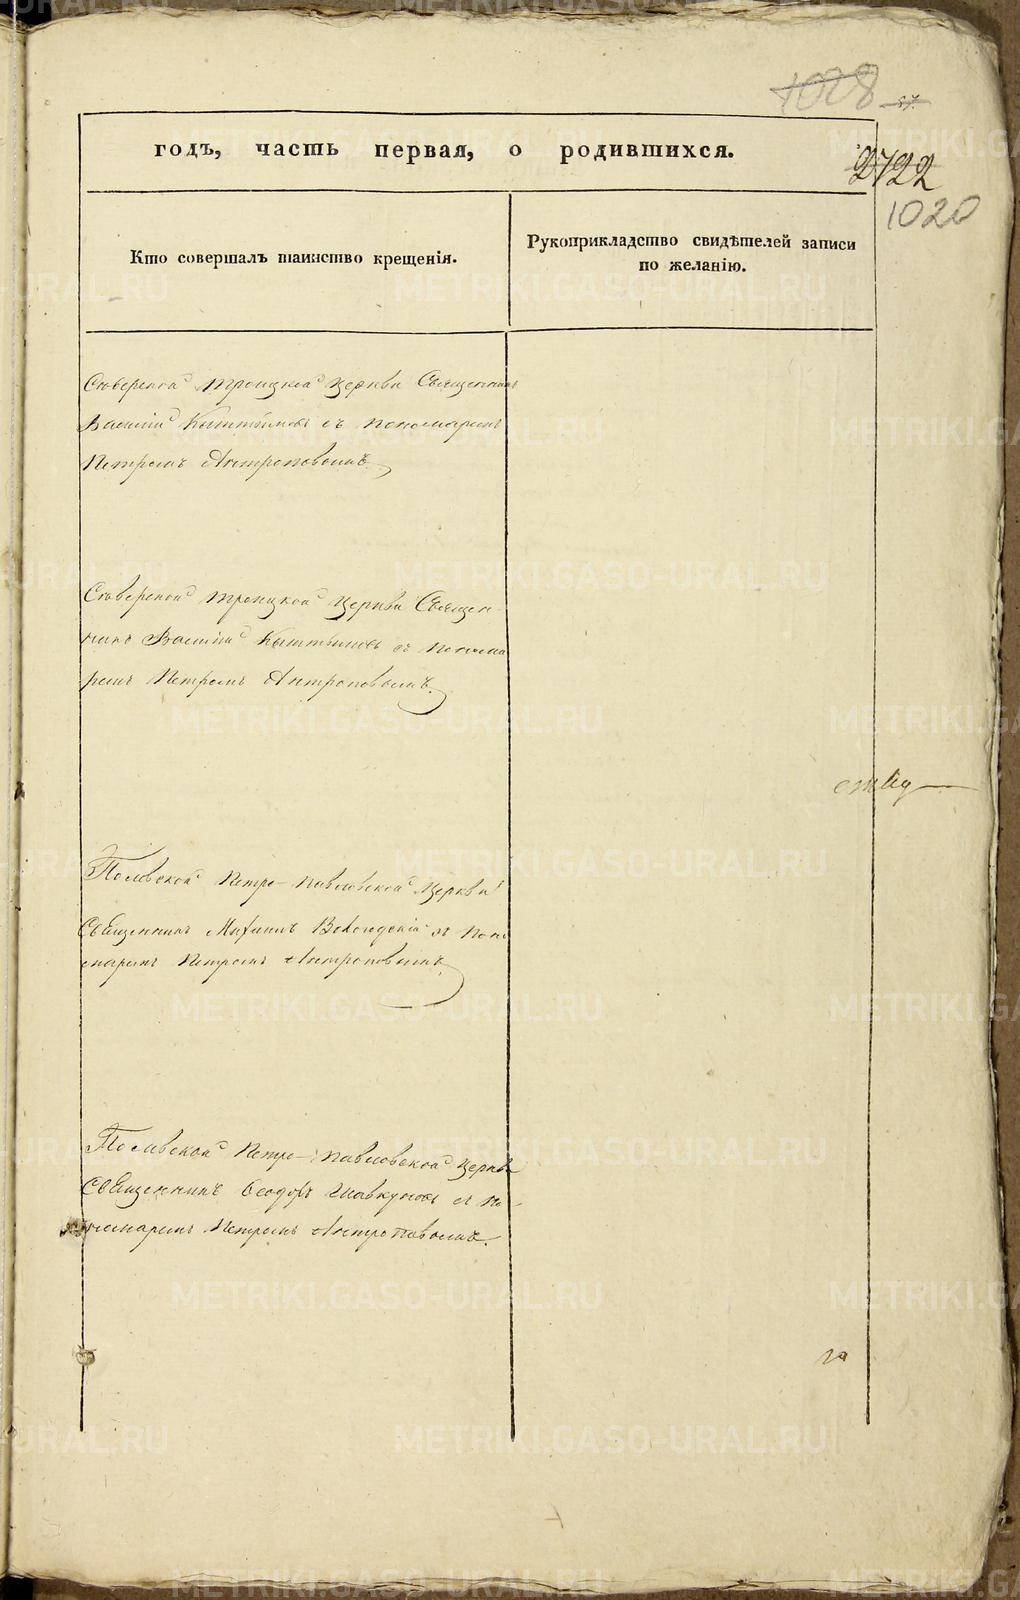 1028
57.
годъ, часть первая, о родившихся.
2722
1020
Кто совершалъ таинство крещенія.
Рукоприкладство свидѣтелей записи
по желанію.
Сѣверской Троицкой Церкви Священникъ
Василій съ пономаремъ
Петромъ Антроповымъ.
Сѣверской Троицкой Церкви Священ-
никъ Василій съ понома
ремъ Петромъ Антроповымъ.
Полевской Петро-Павловской Церкви
Священникъ Михаилъ съ поно
маремъ Петромъ Антроповымъ.
Полевской Петро-Павловской Церкви
Священникъ Ѳеодоръ съ по-
номаремъ Петромъ Антроповымъ.
METRIKI.GASO-URAL.RU